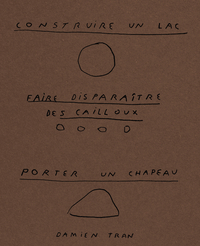 CONSTRUIRE UN LAC
FAIRE DISPARAÎTRE
DES CAILLOUX
PORTER UN CHAPEAU
DAMIEN TRAN